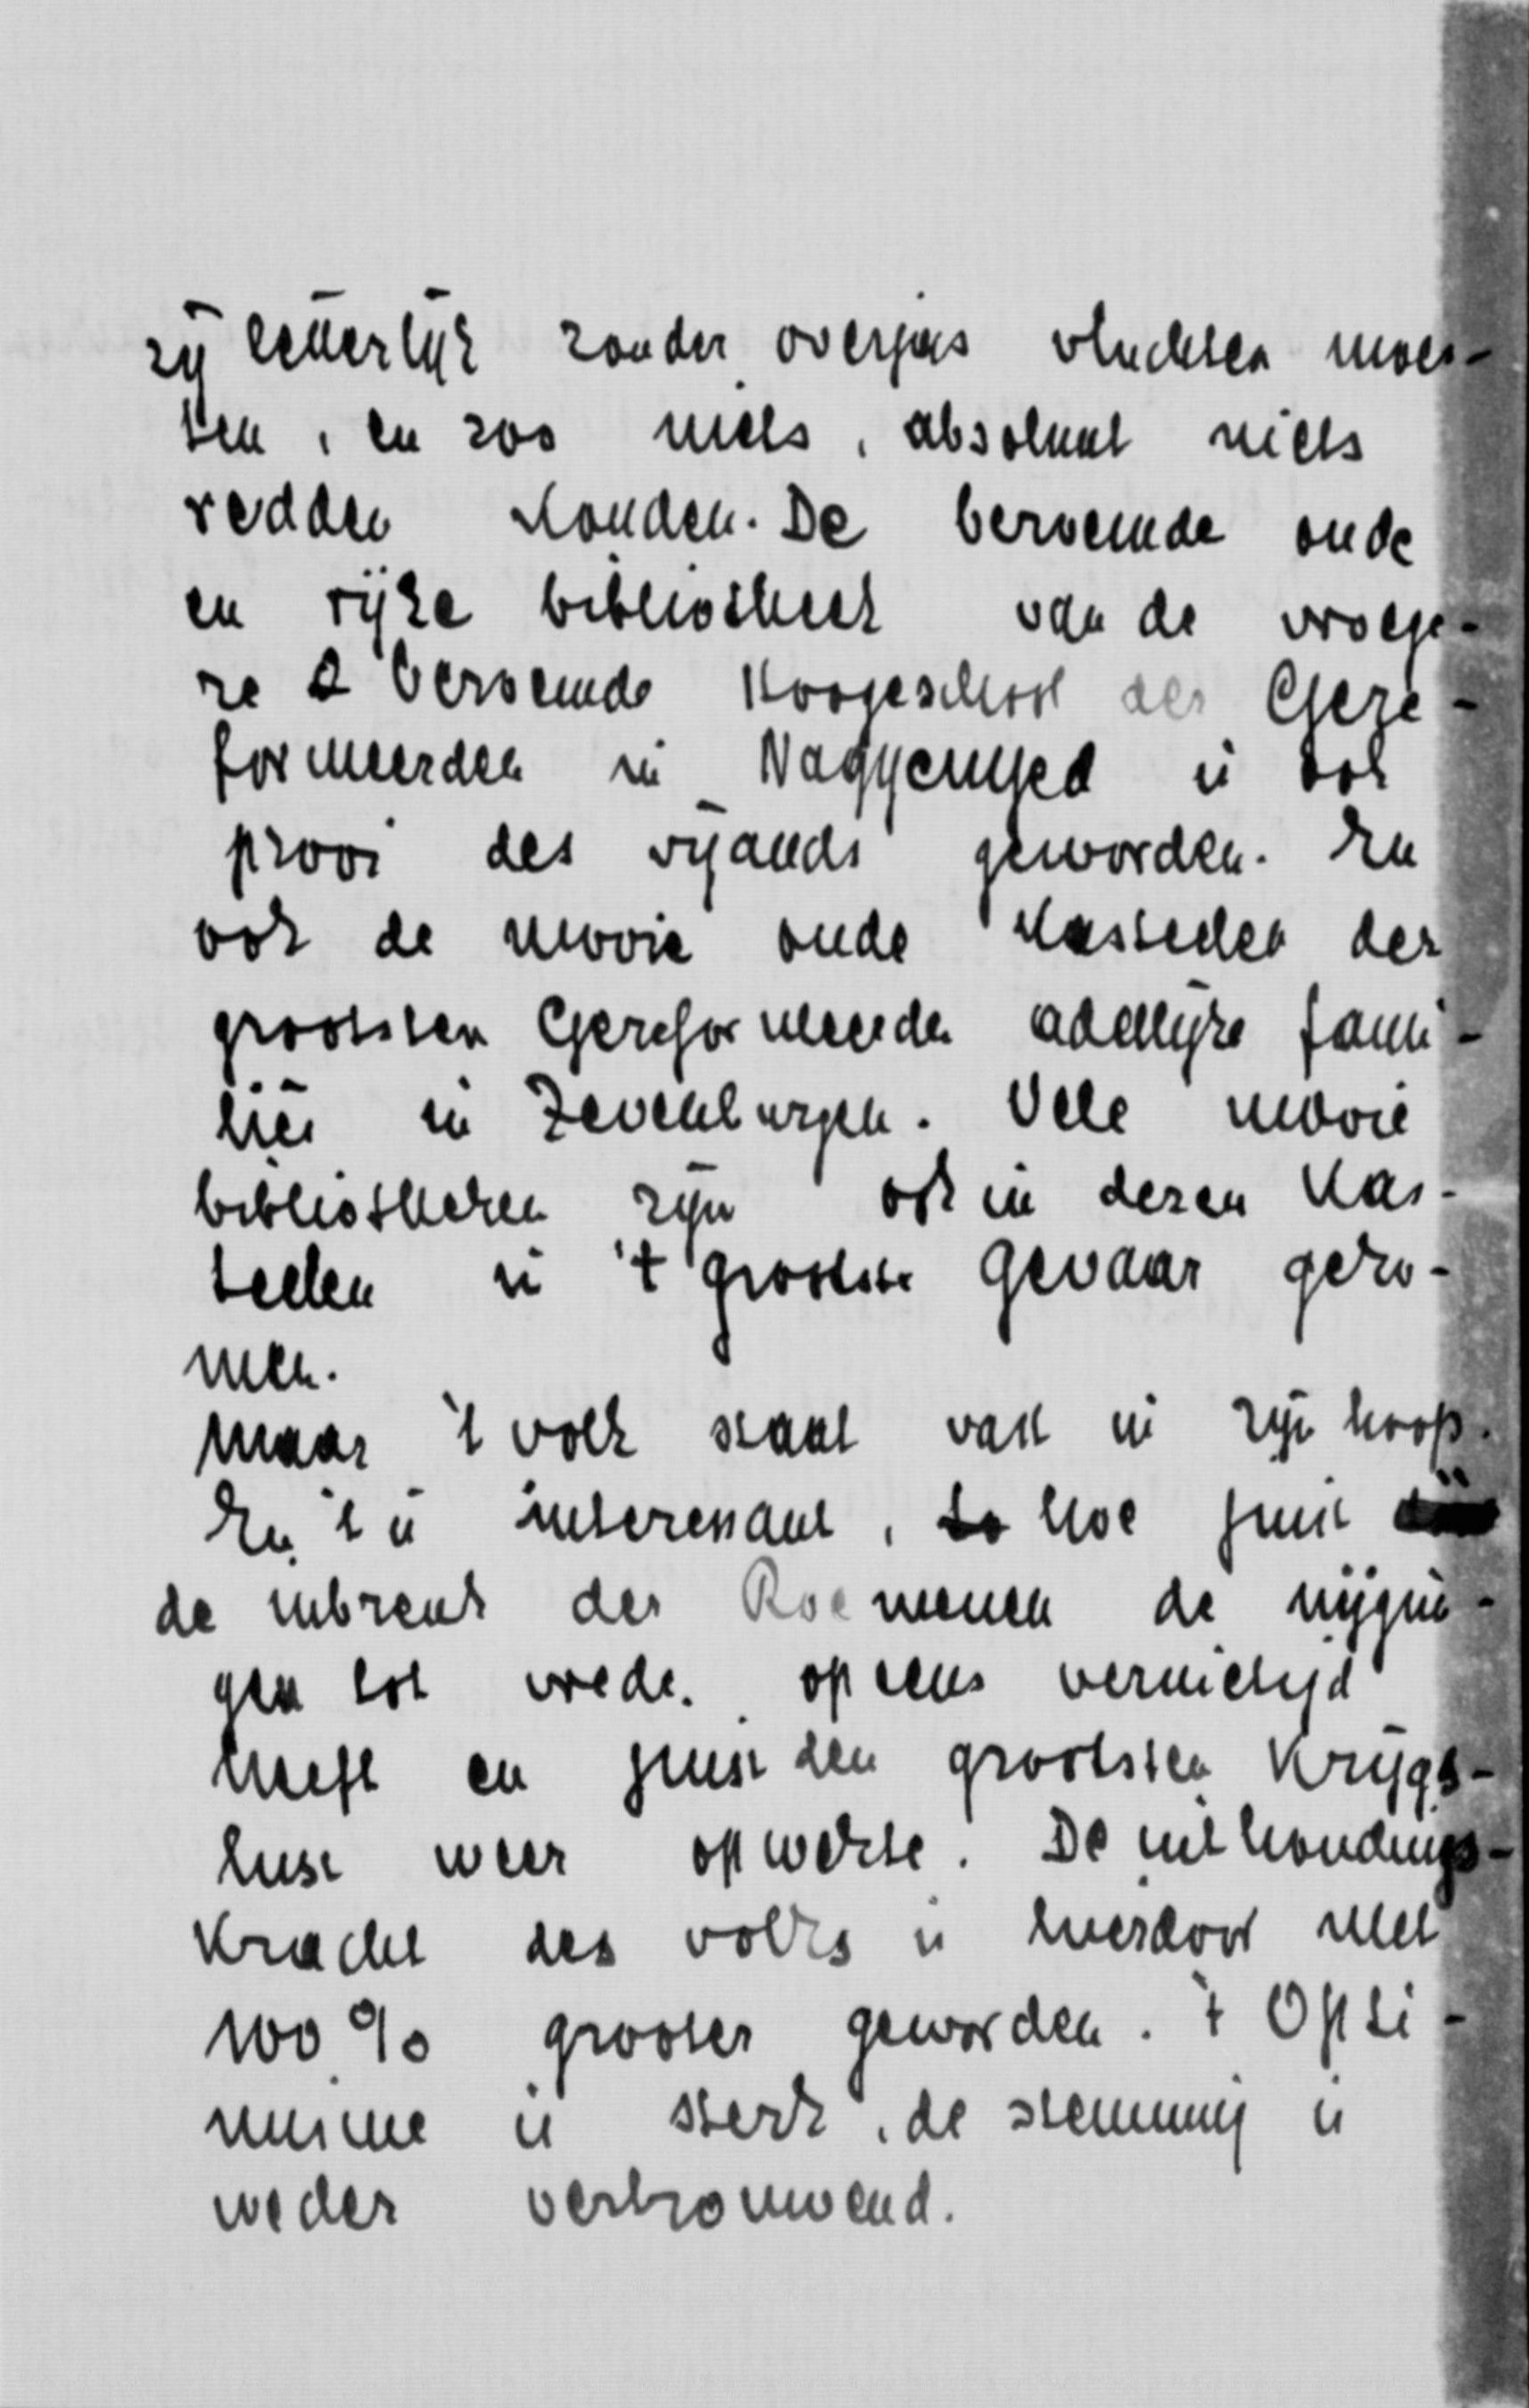 zij letterlijk zonder overjas vluchten moes-
ten, en zoo niets, absoluut niets
redden konden. De beroemde oude
en rijke bibliotheek van de vroege-
re beroemde Hoogeschool der Gere-
formeerden in Nagyenyed is ook
prooi des vijands geworden. En
ook de mooie oude kasteelen der
grootsten Gereformeerden adellijke fami-
liës in Zevenburgen. Vele mooie
bibliotheken zijn ook in dezen Kas-
teelen in 't grootste gevaar geko-
men.
Maar 't volk staat vast in zijn hoop.
En 't is interessant, hoe juist
de inbreuk der Roemenen de nijgin-
gen tot vrede opeens vernietigd
heeft en juist den grootsten Krijgs-
lust weer opwekte. De uithoudings-
kracht des volks is hierdoor met
100 % grooter geworden. 't Opti-
misme is sterk, de stemming is
weder vertrouwend.